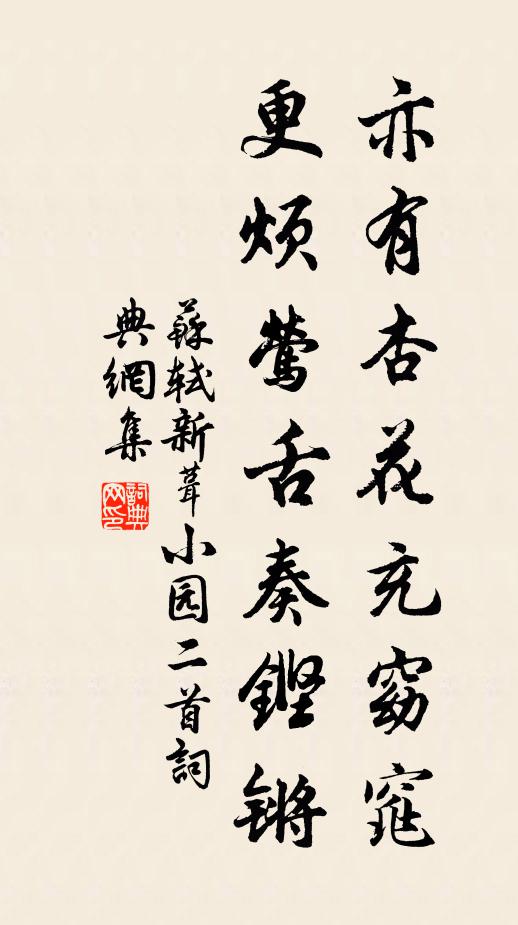 亦有杏花充窈窕
更烦莺舌奏鏗锵
蘇轼新葺小园二首詞
典網集
詞典网印